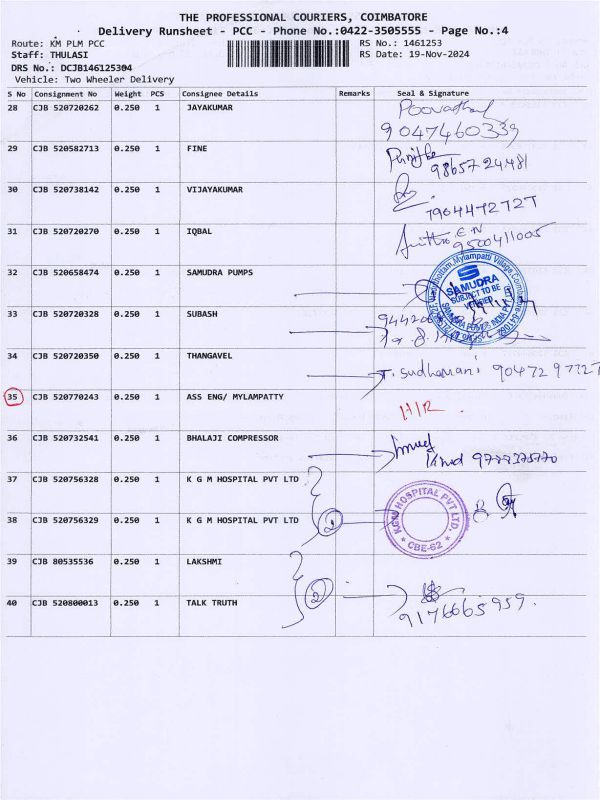 THE PROFESSIONAL COURIERS, COIMBATORE
Delivery Runsheet - PCC - Phone No.:0422-3505555 - Page No.:4
Route: KM PLM PCC RS No.: 1461253
Staff: THULASI RS Date: 19-Nov-2024
DRS No.: DCJB146125304
Vehicle: Two Wheeler Delivery
S No Consignment No Weight PCS Consignee Details Remarks Seal & Signature
28 CJB 520720262 0.250 1 JAYAKUMAR
9047460339
29 CJB 520582713 0.250 1 FINE
9865724481
30 CJB 520738142 0.250 1 VIJAYAKUMAR
7904472727
31 CJB 520720270 0.250 1 IQBAL
9500411005
32 CJB 520658474 0.250 1 SAMUDRA PUMPS
SAMUDRA
SUBJECT TO BE
VERIFIED
33 CJB 520720328 0.250 1 SUBASH
34 CJB 520720350 0.250 1 THANGAVEL
T. Sudhamani 9047297727
35 CJB 520770243 0.250 1 ASS ENG/ MYLAMPATTY
H/R.
36 CJB 520732541 0.250 1 BHALAJI COMPRESSOR
37 CJB 520756328 0.250 1 K G M HOSPITAL PVT LTD
KGM HOSPITAL PVT LTD.
* CBE-62 *
2
38 CJB 520756329 0.250 1 K G M HOSPITAL PVT LTD
39 CJB 80535536 0.250 1 LAKSHMI
2
40 CJB 520800013 0.250 1 TALK TRUTH
9176665959.